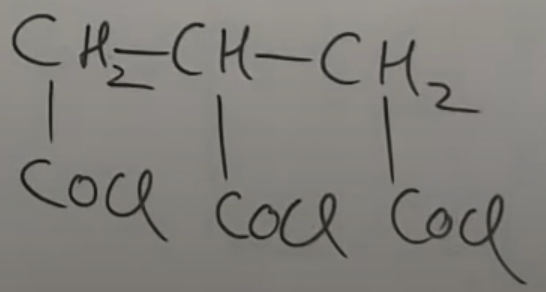 CH2—CH—CH2
COCl COCl COCl